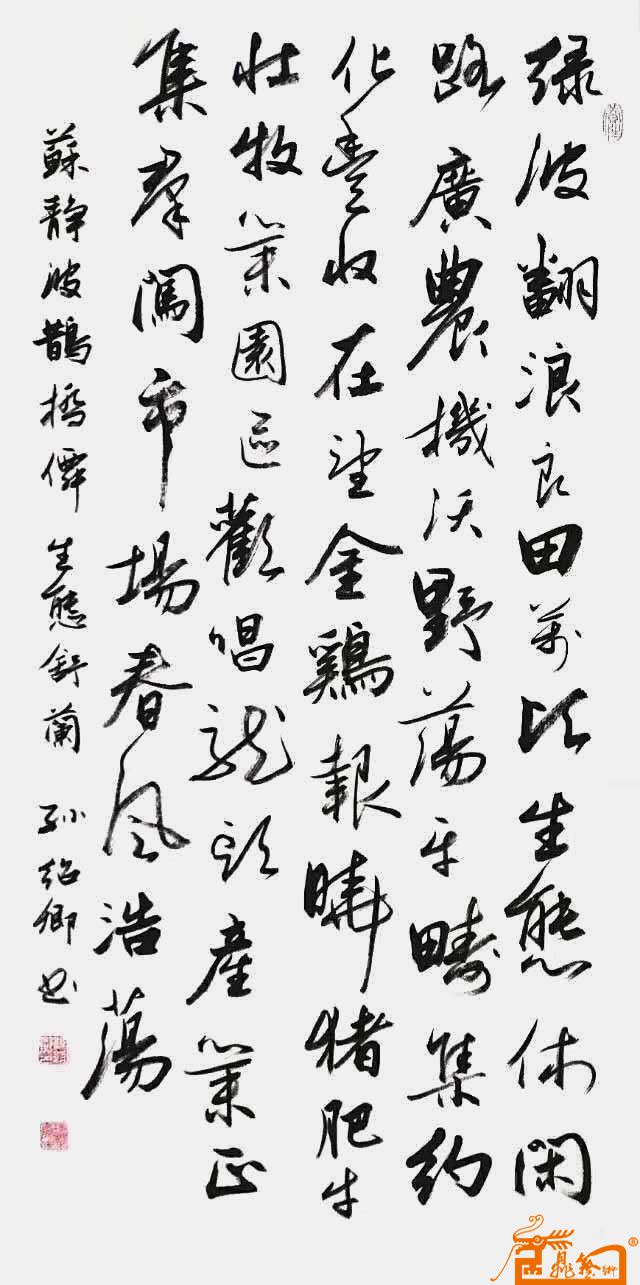 绿波翻浪良田萬顷生態休閑
路廣農機沃野蕩平疇集約
化豊收在望金鷄報曉猪肥牛
壮牧業園區歡唱龍頭產業正
集群闖市場春風浩蕩
蘇静波鵲橋僊 生態舒蘭 孫紹卿書